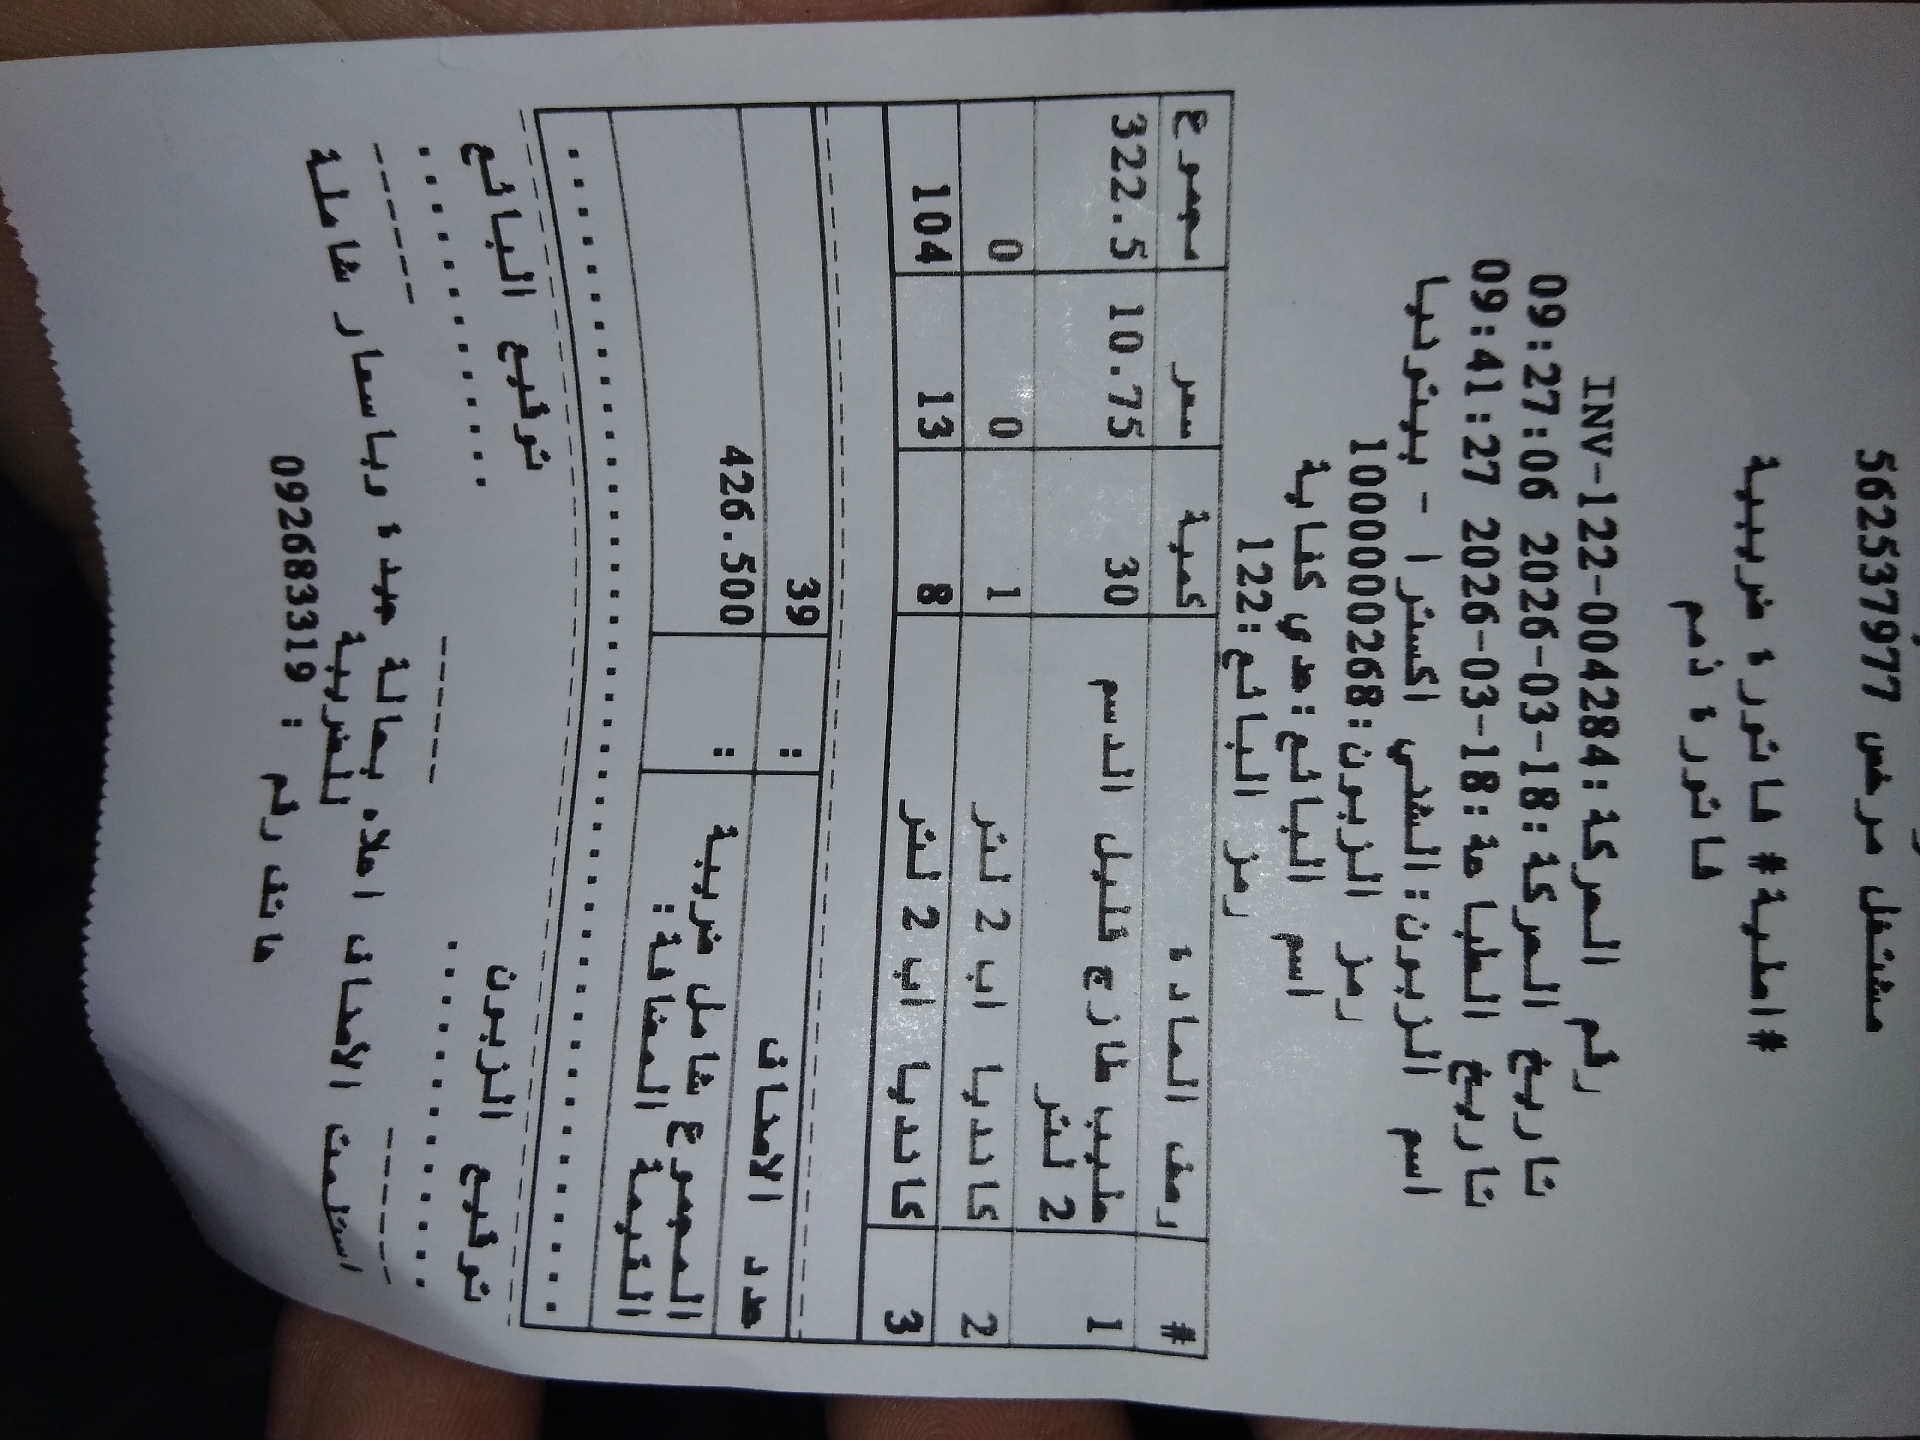 مشتغل مرخص 562537977
#اصلية# فاتورة ضريبية
فاتورة ذمم
رقم الحركة:INV-122-004284
تاريخ الحركة:2026-03-18 09:27:06
تاريخ الطباعة:2026-03-18 09:41:27
اسم الزبون:الشني اكسترا - بيتونيا
رمز الزبون:1000000268
اسم البائع:عدي كفاية
رمز البائع:122
# وصف المادة كمية سعر مجموع
1 حليب طازج قليل الدسم 30 10.75 322.5
2 لتر
2 كانديا اب 2 لتر 1 0 0
3 كانديا اب 2 لتر 8 13 104
عدد الاصناف : 39
المجموع شامل ضريبة : 426.500
القيمة المضافة:
توقيع الزبون توقيع البائع
استلمت الأصناف اعلاه بحالة جيدة وباسعار شاملة
للضريبة
هاتف رقم : 092683319